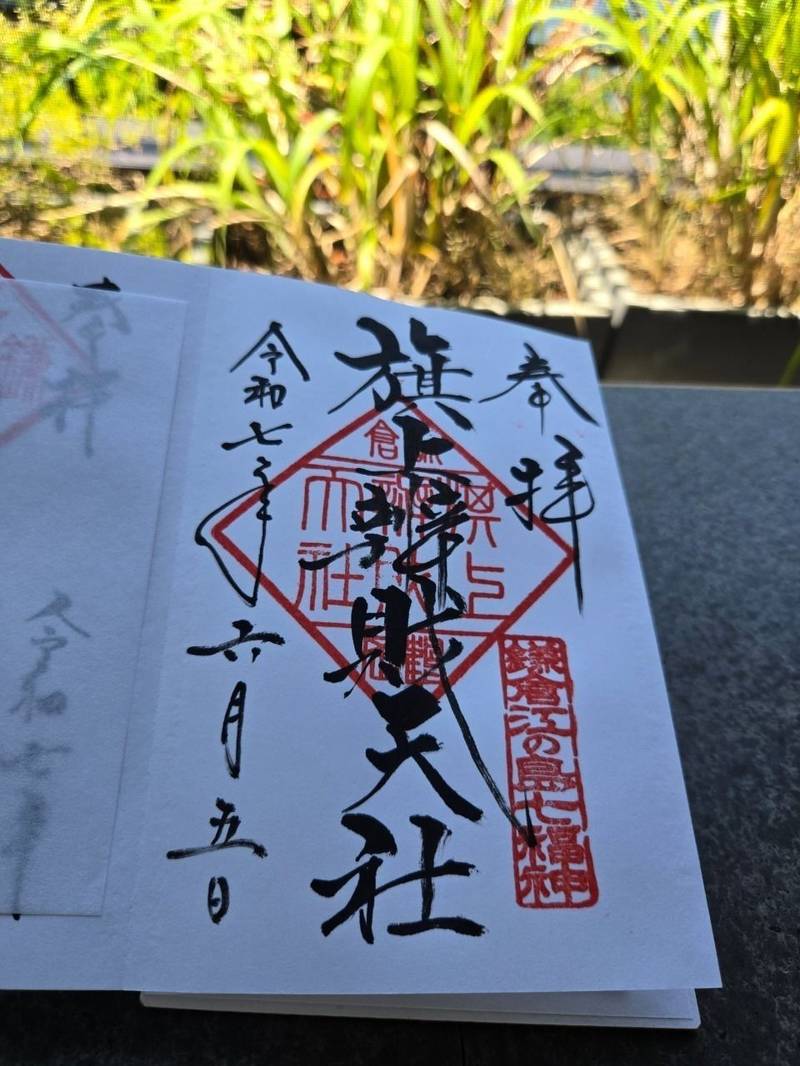 奉拝
鎌倉江の島七福神
旗上辨財天社
令和七年六月五日
奉拝
令和七年